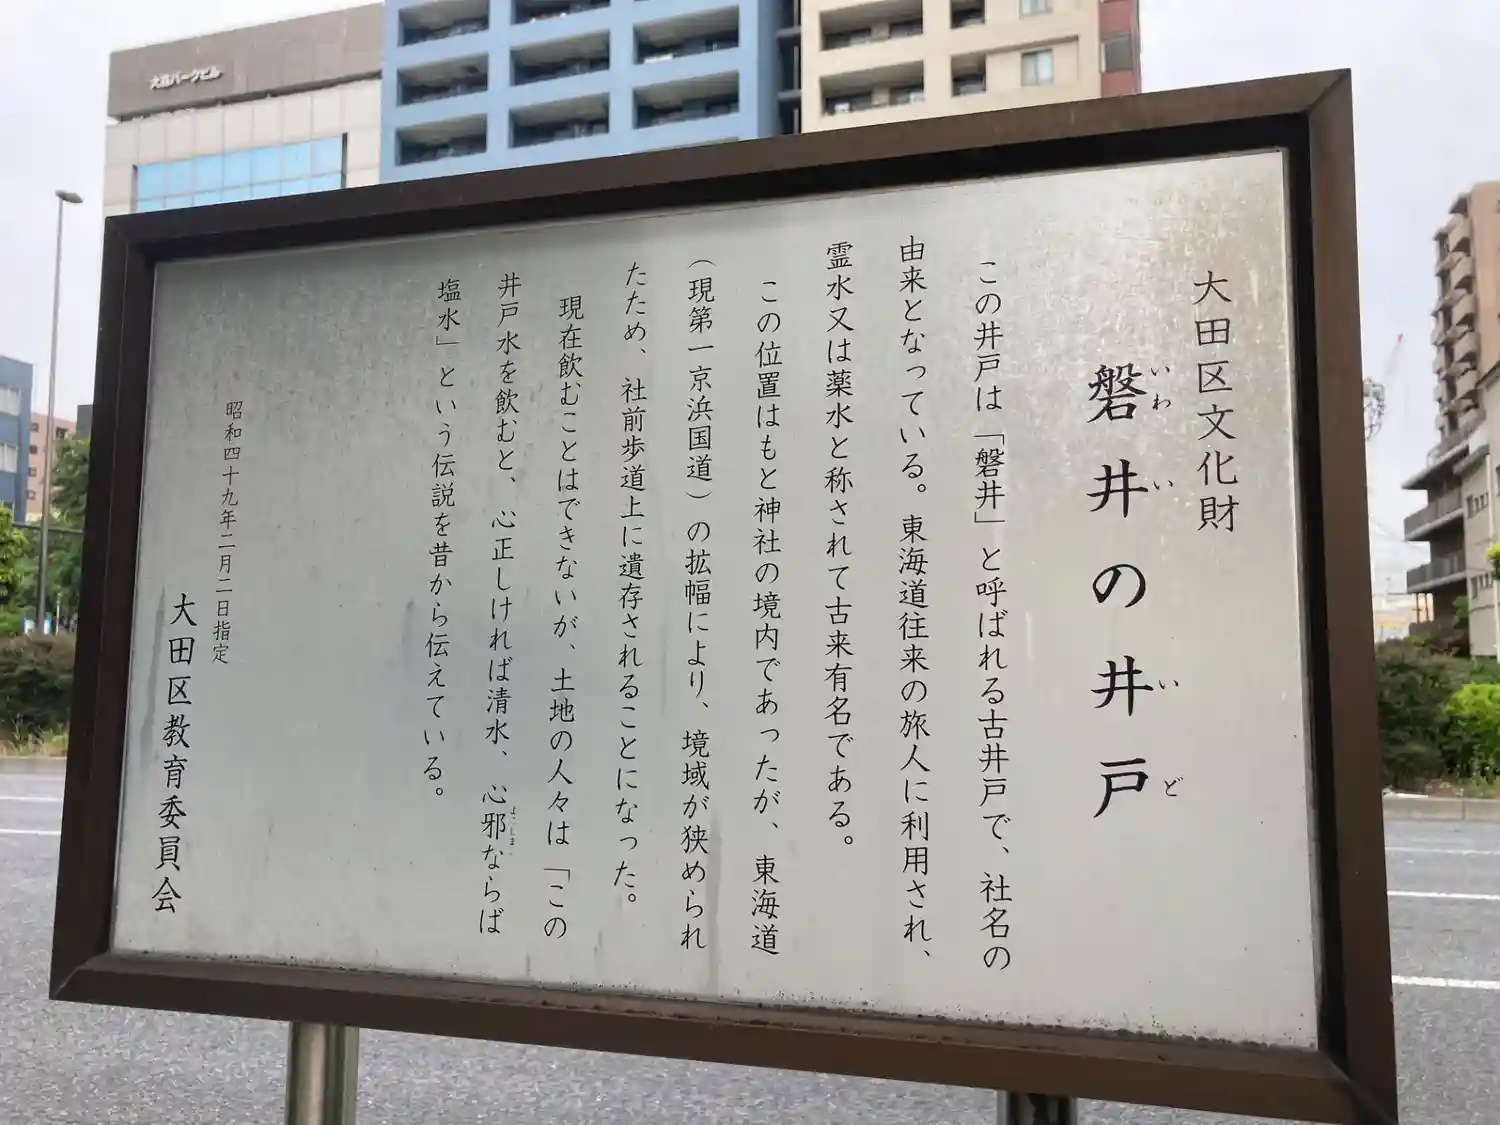 大田区文化財
磐井の井戸
いわ い い ど
この井戸は「磐井」と呼ばれる古井戸で、社名の
由来となっている。東海道往来の旅人に利用され、
霊水又は薬水と称されて古来有名である。
この位置はもと神社の境内であったが、東海道
（現第一京浜国道）の拡幅により、境域が狭められ
たため、社前歩道上に遺存されることになった。
現在飲むことはできないが、土地の人々は「この
井戸水を飲むと、心正しければ清水、心邪ならば
よこしま
塩水」という伝説を昔から伝えている。
昭和四十九年二月二日指定
大田区教育委員会